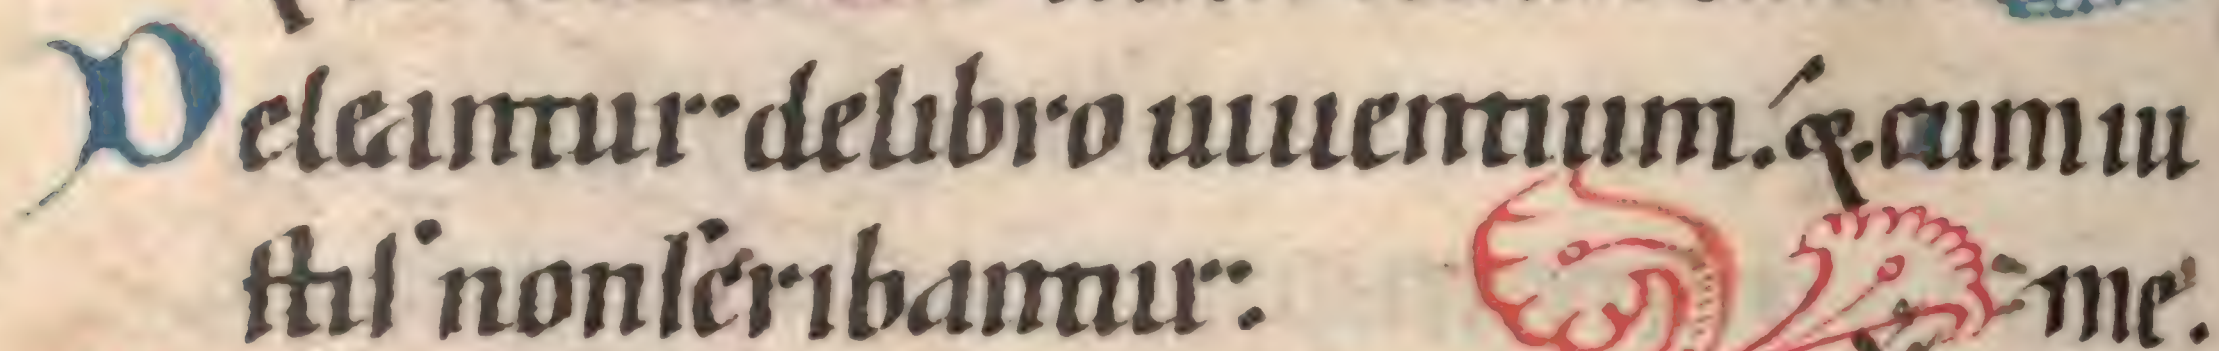 Deleantur de libro uiuentium. & cum iu
stis non scribantur:
me.